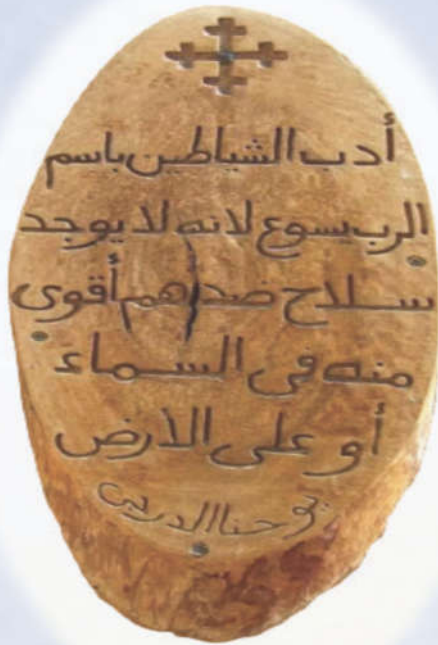 أدب الشياطين باسم
الرب يسوع لانه لا يوجد
سلاح ضدهم أقوى
منه فى السماء
أو على الارض
يوحنا الدرجى